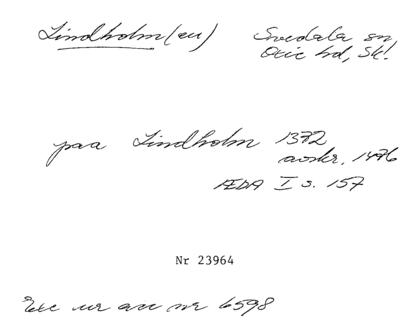 Lindholm(en) Svedala sn,
Oxie hd, Sk!
paa Lindholm 1372
avskr. 1476
ÆDA I s. 157
Nr 23964
Exc ur acc nr 6598